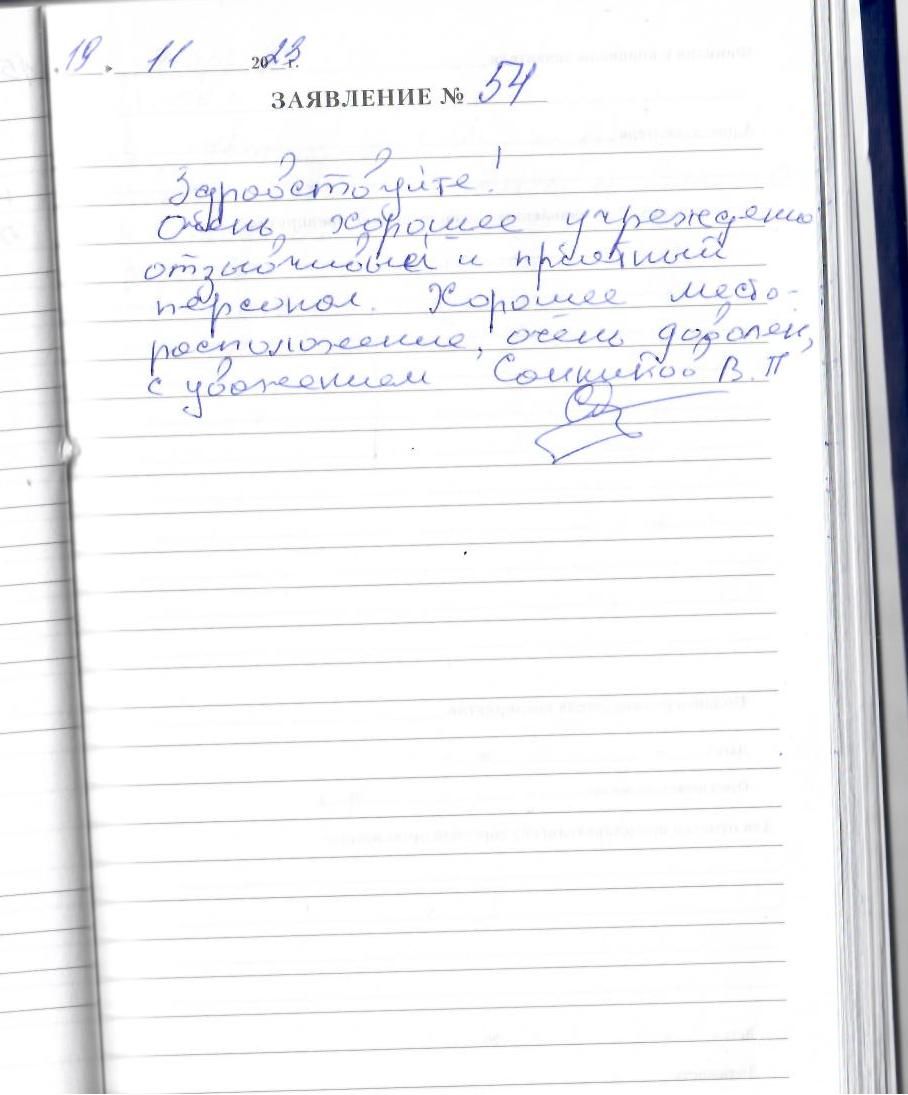 19. 11 2023 г.
ЗАЯВЛЕНИЕ № 54
Здравствуйте!
Очень хорошее учреждение
отзывчивый и приятный
персонал. Хорошее место-
расположение, очень доволен,
с уважением В.П